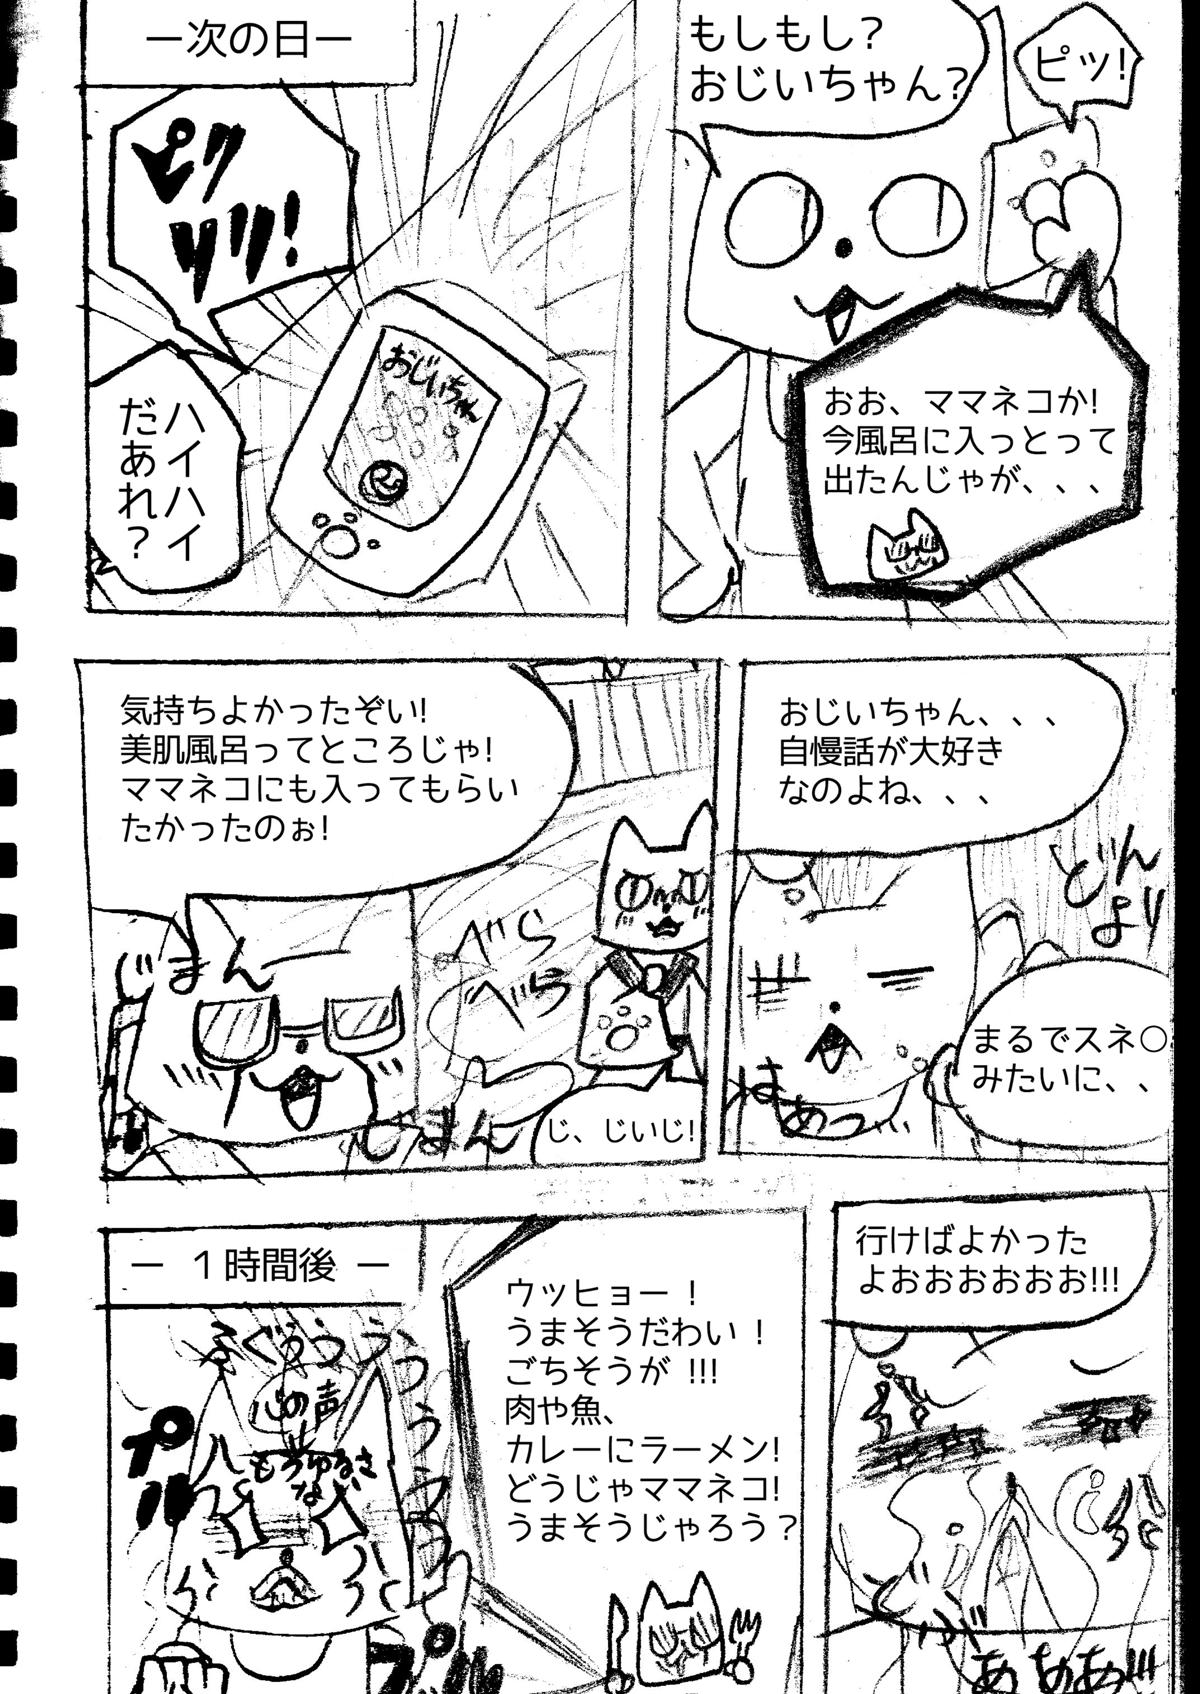 ー次の日ー
ピク
リリ!
おじいちゃん
ハイハイ
だぁれ?
もしもし?
おじいちゃん?
ピッ!
おお、ママネコか!
今風呂に入っとって
出たんじゃが、、、
気持ちよかったぞい!
美肌風呂ってところじゃ!
ママネコにも入ってもらい
たかったのぉ!
じまん
べら
べら
じまん
じ、じいじ!
おじいちゃん、、、
自慢話が大好き
なのよね、、、
どん
より
まるでスネ○
みたいに、、
はあっ…
ー 1時間後 ー
ふぐぅぅぅううううう
心の声
もうゆるさ
なぃ
プル
プル
ウッヒョー!
うまそうだわい!
ごちそうが !!!
肉や魚、
カレーにラーメン!
どうじゃママネコ!
うまそうじゃろう?
行けばよかった
よおおおおおお!!!
あああ!!!